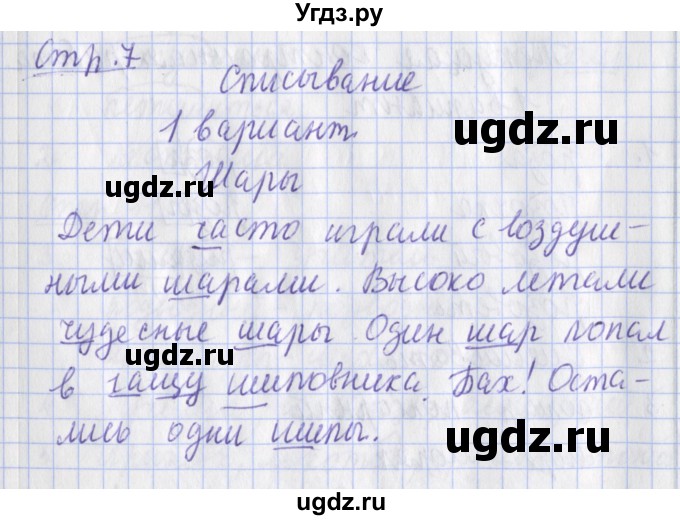 Угдз.ру
Стр. 7
Списывание
1 вариант.
ugdz.ru
ugdz.ru
Шары
Дети часто играли с воздуш-
ными шарами. Высоко летали
чудесные шары. Один шар попал
ugdz.ru
в чащу шиповника. Бах! Оста-
лись одни шипы.
ugdz.ru
ugdz.ru